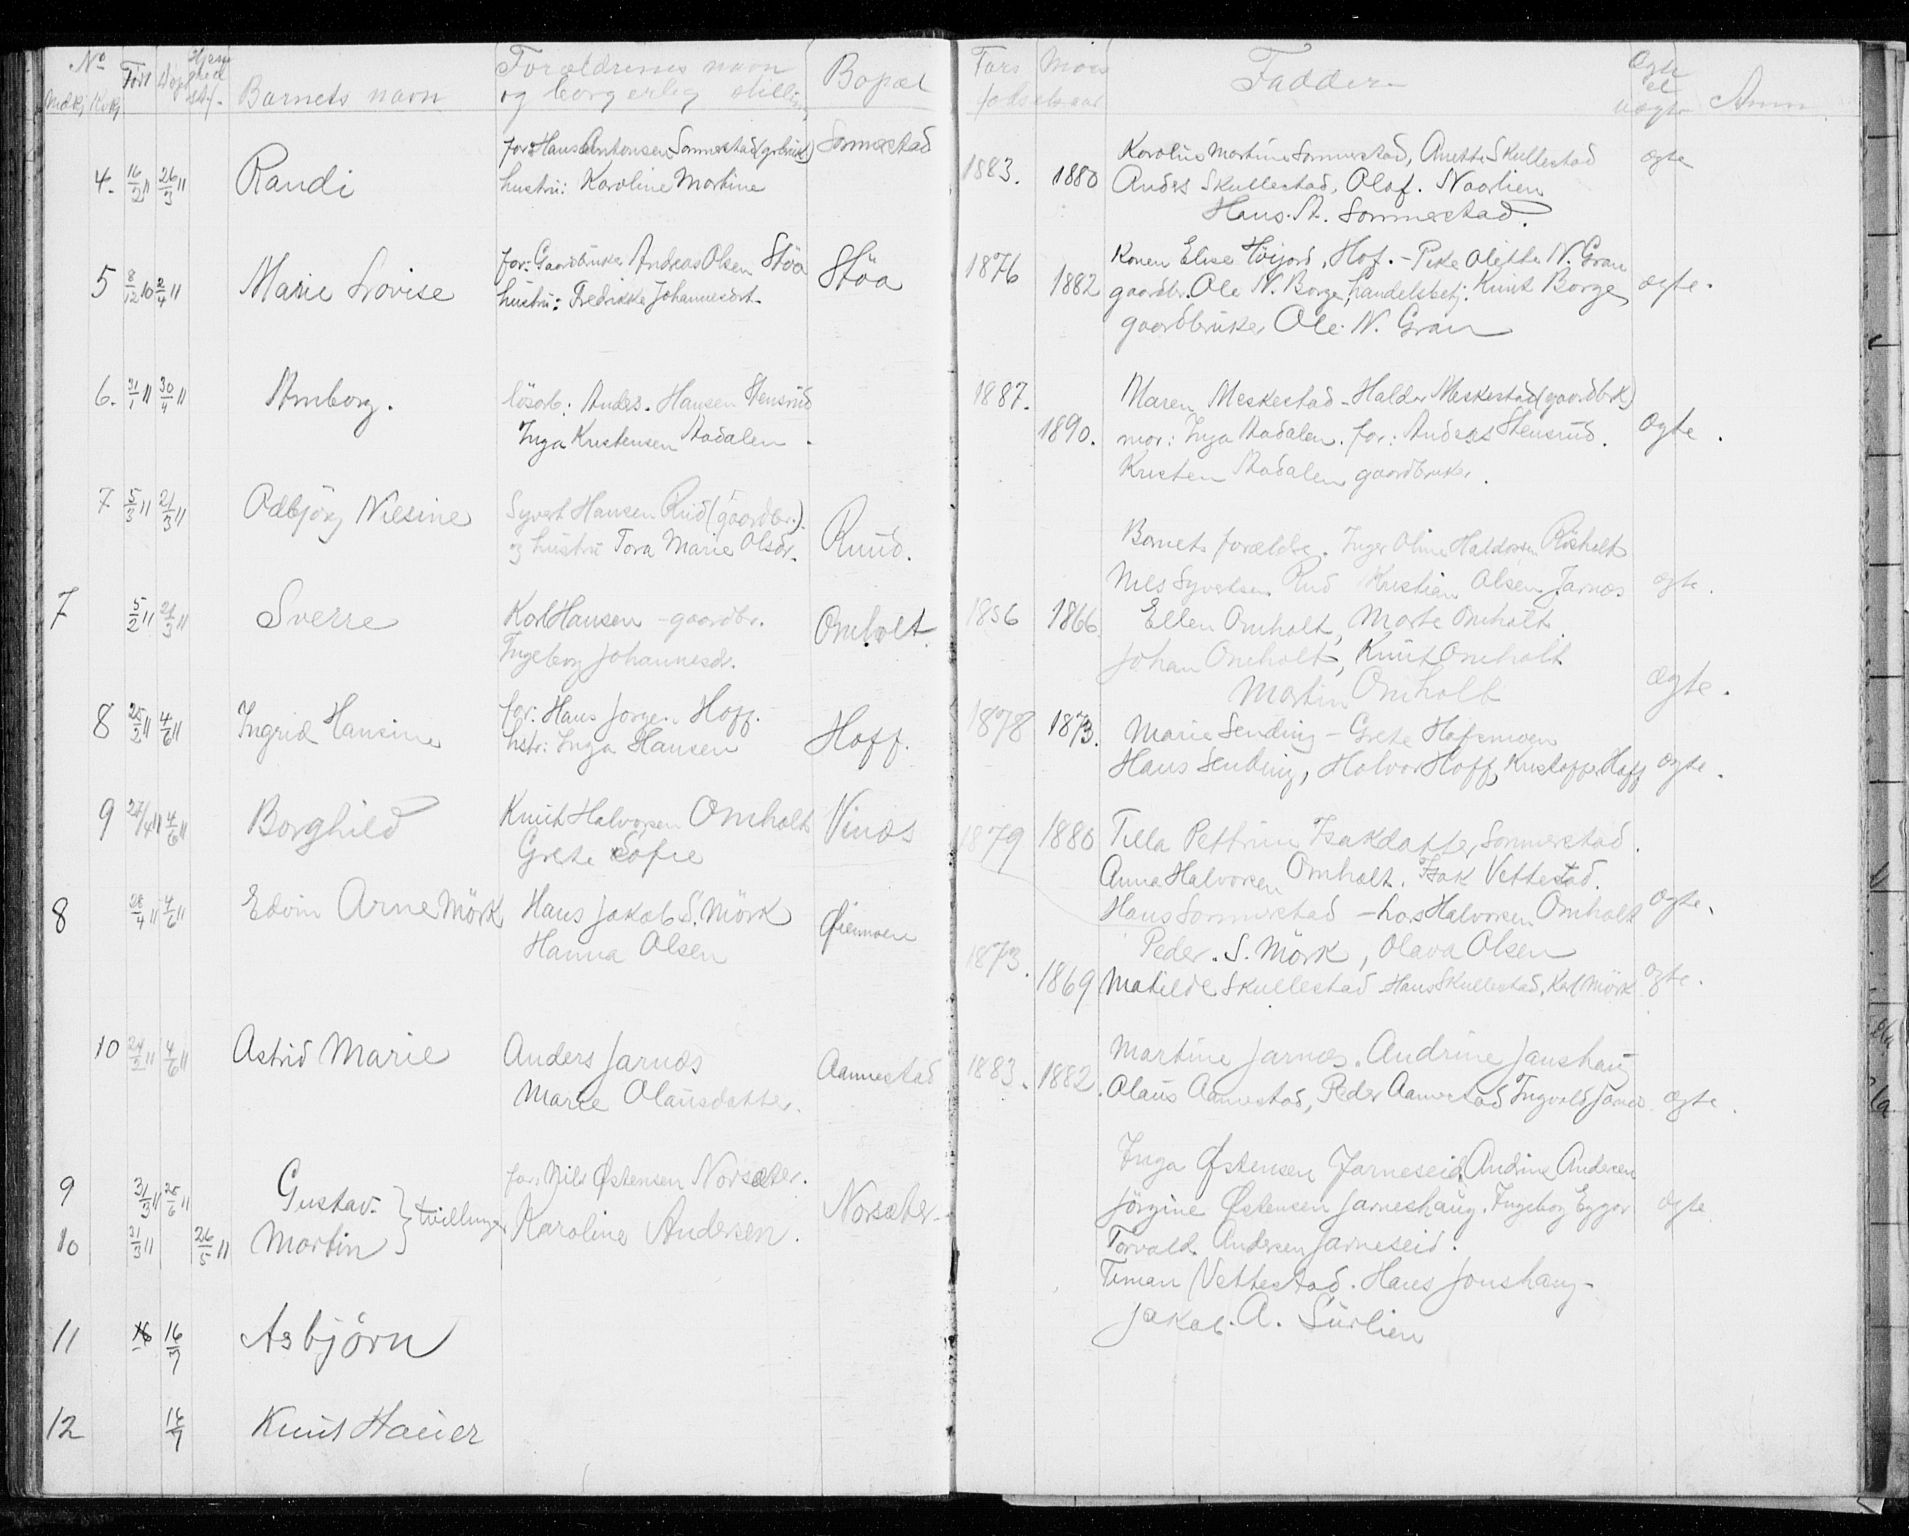 No
Mdkj. Kvkj.
Født
Døpt
Hjem
døbt
st.
Barnets navn
Forældrenes navn
og borgerlig stilling
Bopæl
Fars
Mors
fødselsaar
Faddere
Ægte
el
uægte
Anm
4. 16/2 11 26/3 11 Randi
far: Hans Antonsen Sommerstad (grbruk)
hustru: Karoline Martine
Sommerstad
1883. 1880
Karoline Martine Sommerstad, Anette Skullestad
Anders Skullestad, Olaf. Naarlien
Hans. A. Sommerstad
ægte
5 8/12 10 2/4 11 Marie Lovise
far: Gaardbruker Andreas Olsen Støa
hustru: Fredrikke Johannesdat.
Støa
1876 1882
Konen Elise Høijord, Hof. - Pike Olette N. Gran
gaardbr. Ole N. Borge, handelsbetj. Knut Borge
gaardbruker Ole. N. Gran
ægte.
6. 31/1 11 30/4 11 Arnborg.
løsarb: Anders. Hansen Stensrud
Inga Kristensen Aadalen.
1887. 1890.
Maren Meskestad - Haldor Meskestad (gaardbrk)
mor: Inga Aadalen. far: Anders Stensrud.
Kristen Aadalen gaardbruker.
Ægte.
7 5/3 11 21/3 11 Odbjørg Nilsine
Syvert Hansen Rud (gaardbr.)
og hustru Tora Marie Olsdr.
Ruud.
Barnets forældre. Inger Oline Haldorsen Røsholt
Nils Syvertsen Rud Kristian Olsen Jarnæs
ægte.
7 5/2 11 21/3 11 Sverre
Karl Hansen - gaardbr.
Ingeborg Johannesdr.
Omholt.
1856 1866
Ellen Omholt, Marte Omholt
Johan Omholt, Knut Omholt
Martin Omholt
Ægte.
8 25/2 11 4/6 11 Ingrid Hansine
far: Hans Jørgen Hoff.
hstr: Inga Hansen
Hoff.
1878 1873.
Marie Sending - Grete Hofsmoen
Hans Sending, Halvor Hoff, Kristoffer Hoff
ægte.
9 27/4 11 4/6 11 Borghild
Knut Halvorsen Omholt
Grete Sofie
Vinæs
1879 1880
Tilla Pettrine Isakdatter Sommerstad.
Anna Halvorsen Omholt. Isak Vettestad.
Hans Sommerstad - Lars Halvorsen Omholt
ægte.
8 28/4 11 4/6 11 Edvin Arne Mørk
Hans Jakob S. Mørk
Hanna Olsen
Øienmoen
1873. 1869
Peder. S. Mørk, Olava Olsen
Matilde Skullestad Hans Skullestad, Karl Mørk
ægte.
10 24/2 11 4/6 11 Astrid Marie
Anders Jarnæs
Marie Olausdatter.
Aamestad
1883. 1882.
Martine Jarnæs. Andrine Janshaug
Olaus Aamestad, Peder Aamestad Ingvald Jarnæs
ægte.
9 31/3 11 25/6 11 Gustav.
10 31/3 11 26/5 11 Martin } tvillinger
far: Nils Østensen Norsæter.
Karoline Andersen.
Norsæter.
Inga Østensen Jarneseid, Andine Andersen
Jørgine Østensen Jarneshaug. Ingeborg Eggar
Torvald. Andersen Jarneseid.
Timan Vettestad. Hans Jonshaug -
Jakob. A. Surlien
ægte
11 16 16/7 Asbjørn
12 16/7 Knut Hauer